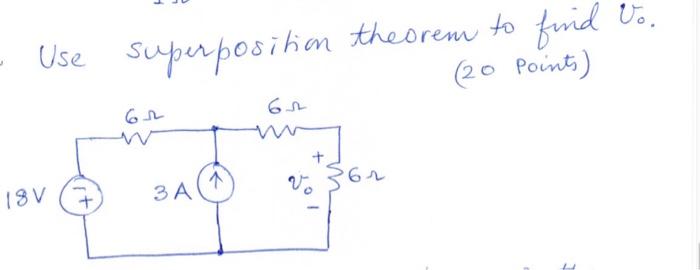 Use superposition theorem to find v₀.
(20 Points)
6Ω 6Ω
18V
-
+
3A
+
v₀
-
6Ω